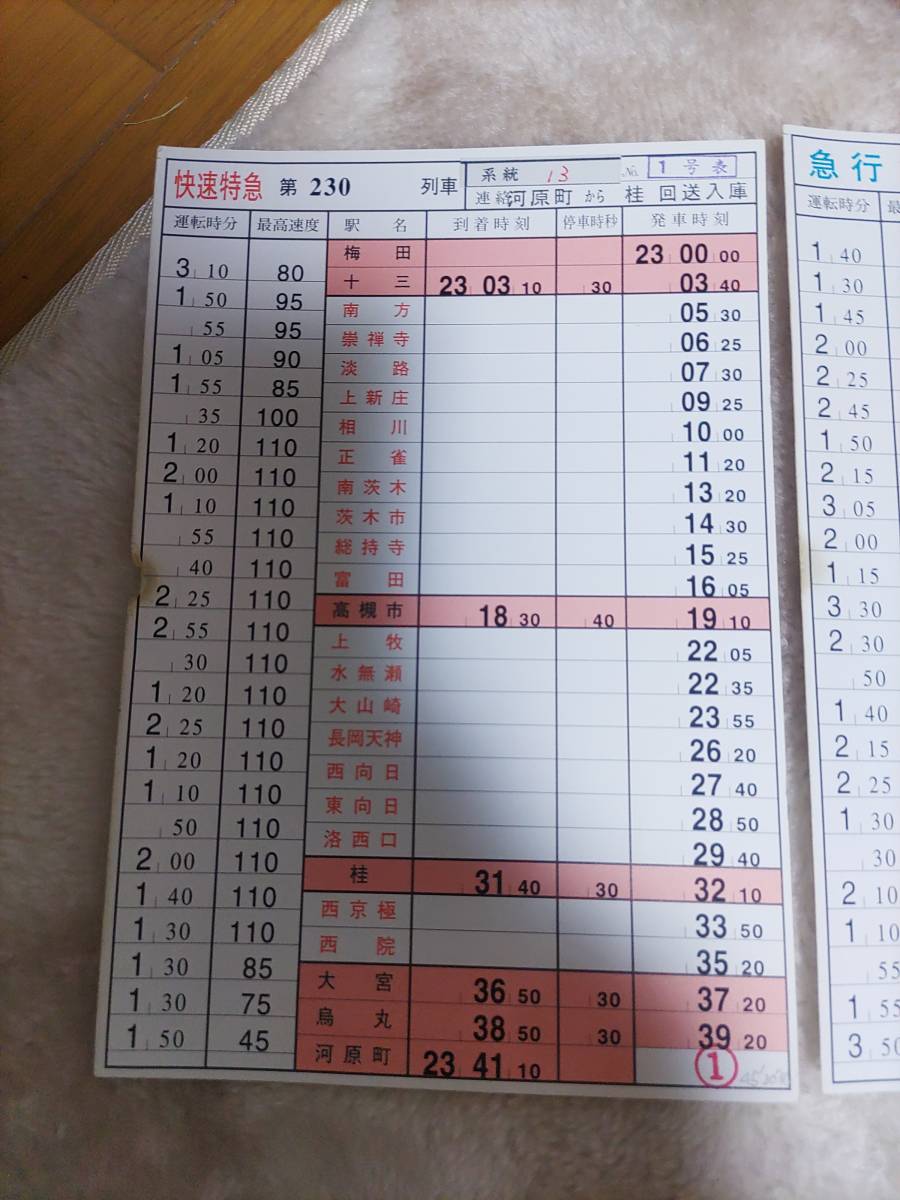 快速特急 第 230 列車 系統 13 No. 1号表
連絡 河原町 から 桂 回送入庫
運転時分 最高速度 駅名 到着時刻 停車時秒 発車時刻
梅田 23 00 00
3 10 80 十三 23 03 10 30 03 40
1 50 95 南方 05 30
55 95 崇禅寺 06 25
1 05 90 淡路 07 30
1 55 85 上新庄 09 25
35 100 相川 10 00
1 20 110 正雀 11 20
2 00 110 南茨木 13 20
1 10 110 茨木市 14 30
55 110 総持寺 15 25
40 110 富田 16 05
2 25 110 高槻市 18 30 40 19 10
2 55 110 上牧 22 05
30 110 水無瀬 22 35
1 20 110 大山崎 23 55
2 25 110 長岡天神 26 20
1 20 110 西向日 27 40
1 10 110 東向日 28 50
50 110 洛西口 29 40
2 00 110 桂 31 40 30 32 10
1 40 110 西京極 33 50
1 30 110 西院 35 20
1 30 85 大宮 36 50 30 37 20
1 30 75 烏丸 38 50 30 39 20
1 50 45 河原町 23 41 10 ①
急行
運転時分
1 40
1 30
1 45
2 00
2 25
2 45
1 50
2 15
3 05
2 00
1 15
3 30
2 30
50
1 40
2 15
2 25
1 30
30
2 10
1 10
55
1 55
3 50